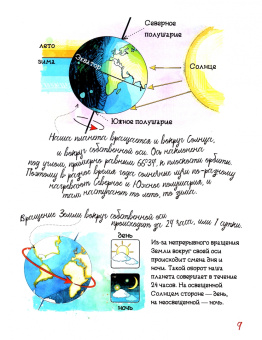 Северное
полушарие
лето
зима
Экватор
Солнце
Южное полушарие
Наша планета вращается и вокруг Солнца,
и вокруг собственной оси. Ось наклонена
под углом, примерно равным 66°34', к плоскости орбиты.
Поэтому в разное время года солнечные лучи по-разному
нагревают Северное и Южное полушария, и
там наступает то лето, то зима.
Вращение Земли вокруг собственной оси
происходит за 24 часа, или 1 сутки.
день
ночь
Из-за непрерывного вращения
Земли вокруг своей оси
происходит смена дня и
ночи. Такой оборот наша
планета совершает в течение
24 часов. На освещенной
Солнцем стороне — день,
на неосвещенной — ночь.
9